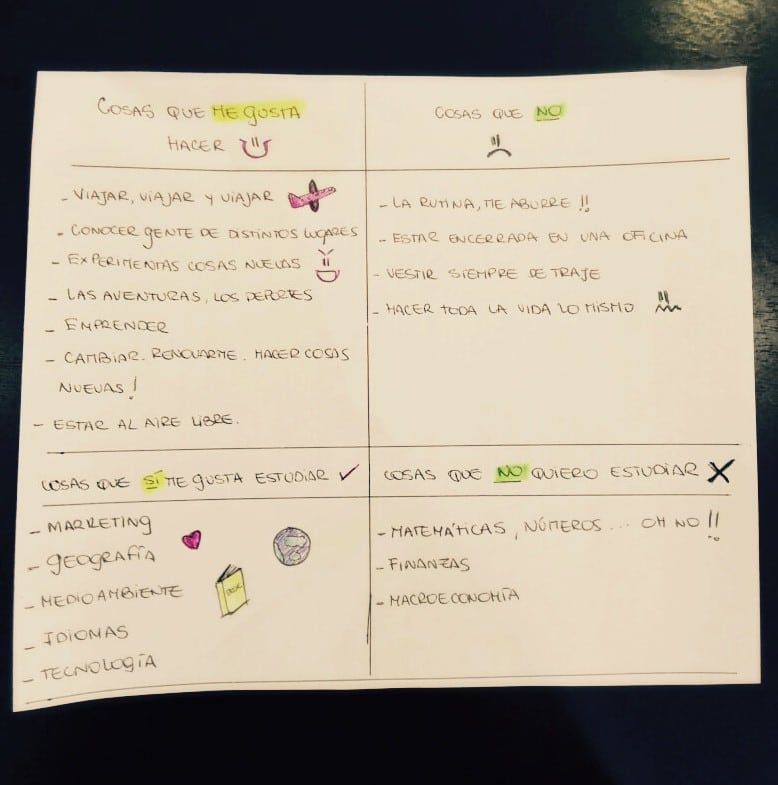 COSAS QUE ME GUSTA
HACER
- VIAJAR, VIAJAR Y VIAJAR
- CONOCER GENTE DE DISTINTOS LUGARES
- EXPERIMENTAS COSAS NUEVAS
- LAS AVENTURAS, LOS DEPORTES
- EMPRENDER
- CAMBIAR. RENOVARME. HACER COSAS
NUEVAS!
- ESTAR AL AIRE LIBRE.
COSAS QUE NO
- LA RUTINA, ME ABURRE!!
- ESTAR ENCERRADA EN UNA OFICINA
- VESTIR SIEMPRE DE TRAJE
- HACER TODA LA VIDA LO MISMO
COSAS QUE SÍ ME GUSTA ESTUDIAR
- MARKETING
- GEOGRAFÍA
- MEDIOAMBIENTE
- IDIOMAS
- TECNOLOGÍA
COSAS QUE NO QUIERO ESTUDIAR
- MATEMÁTICAS, NÚMEROS... OH NO!!
- FINANZAS
- MACROECONOMÍA